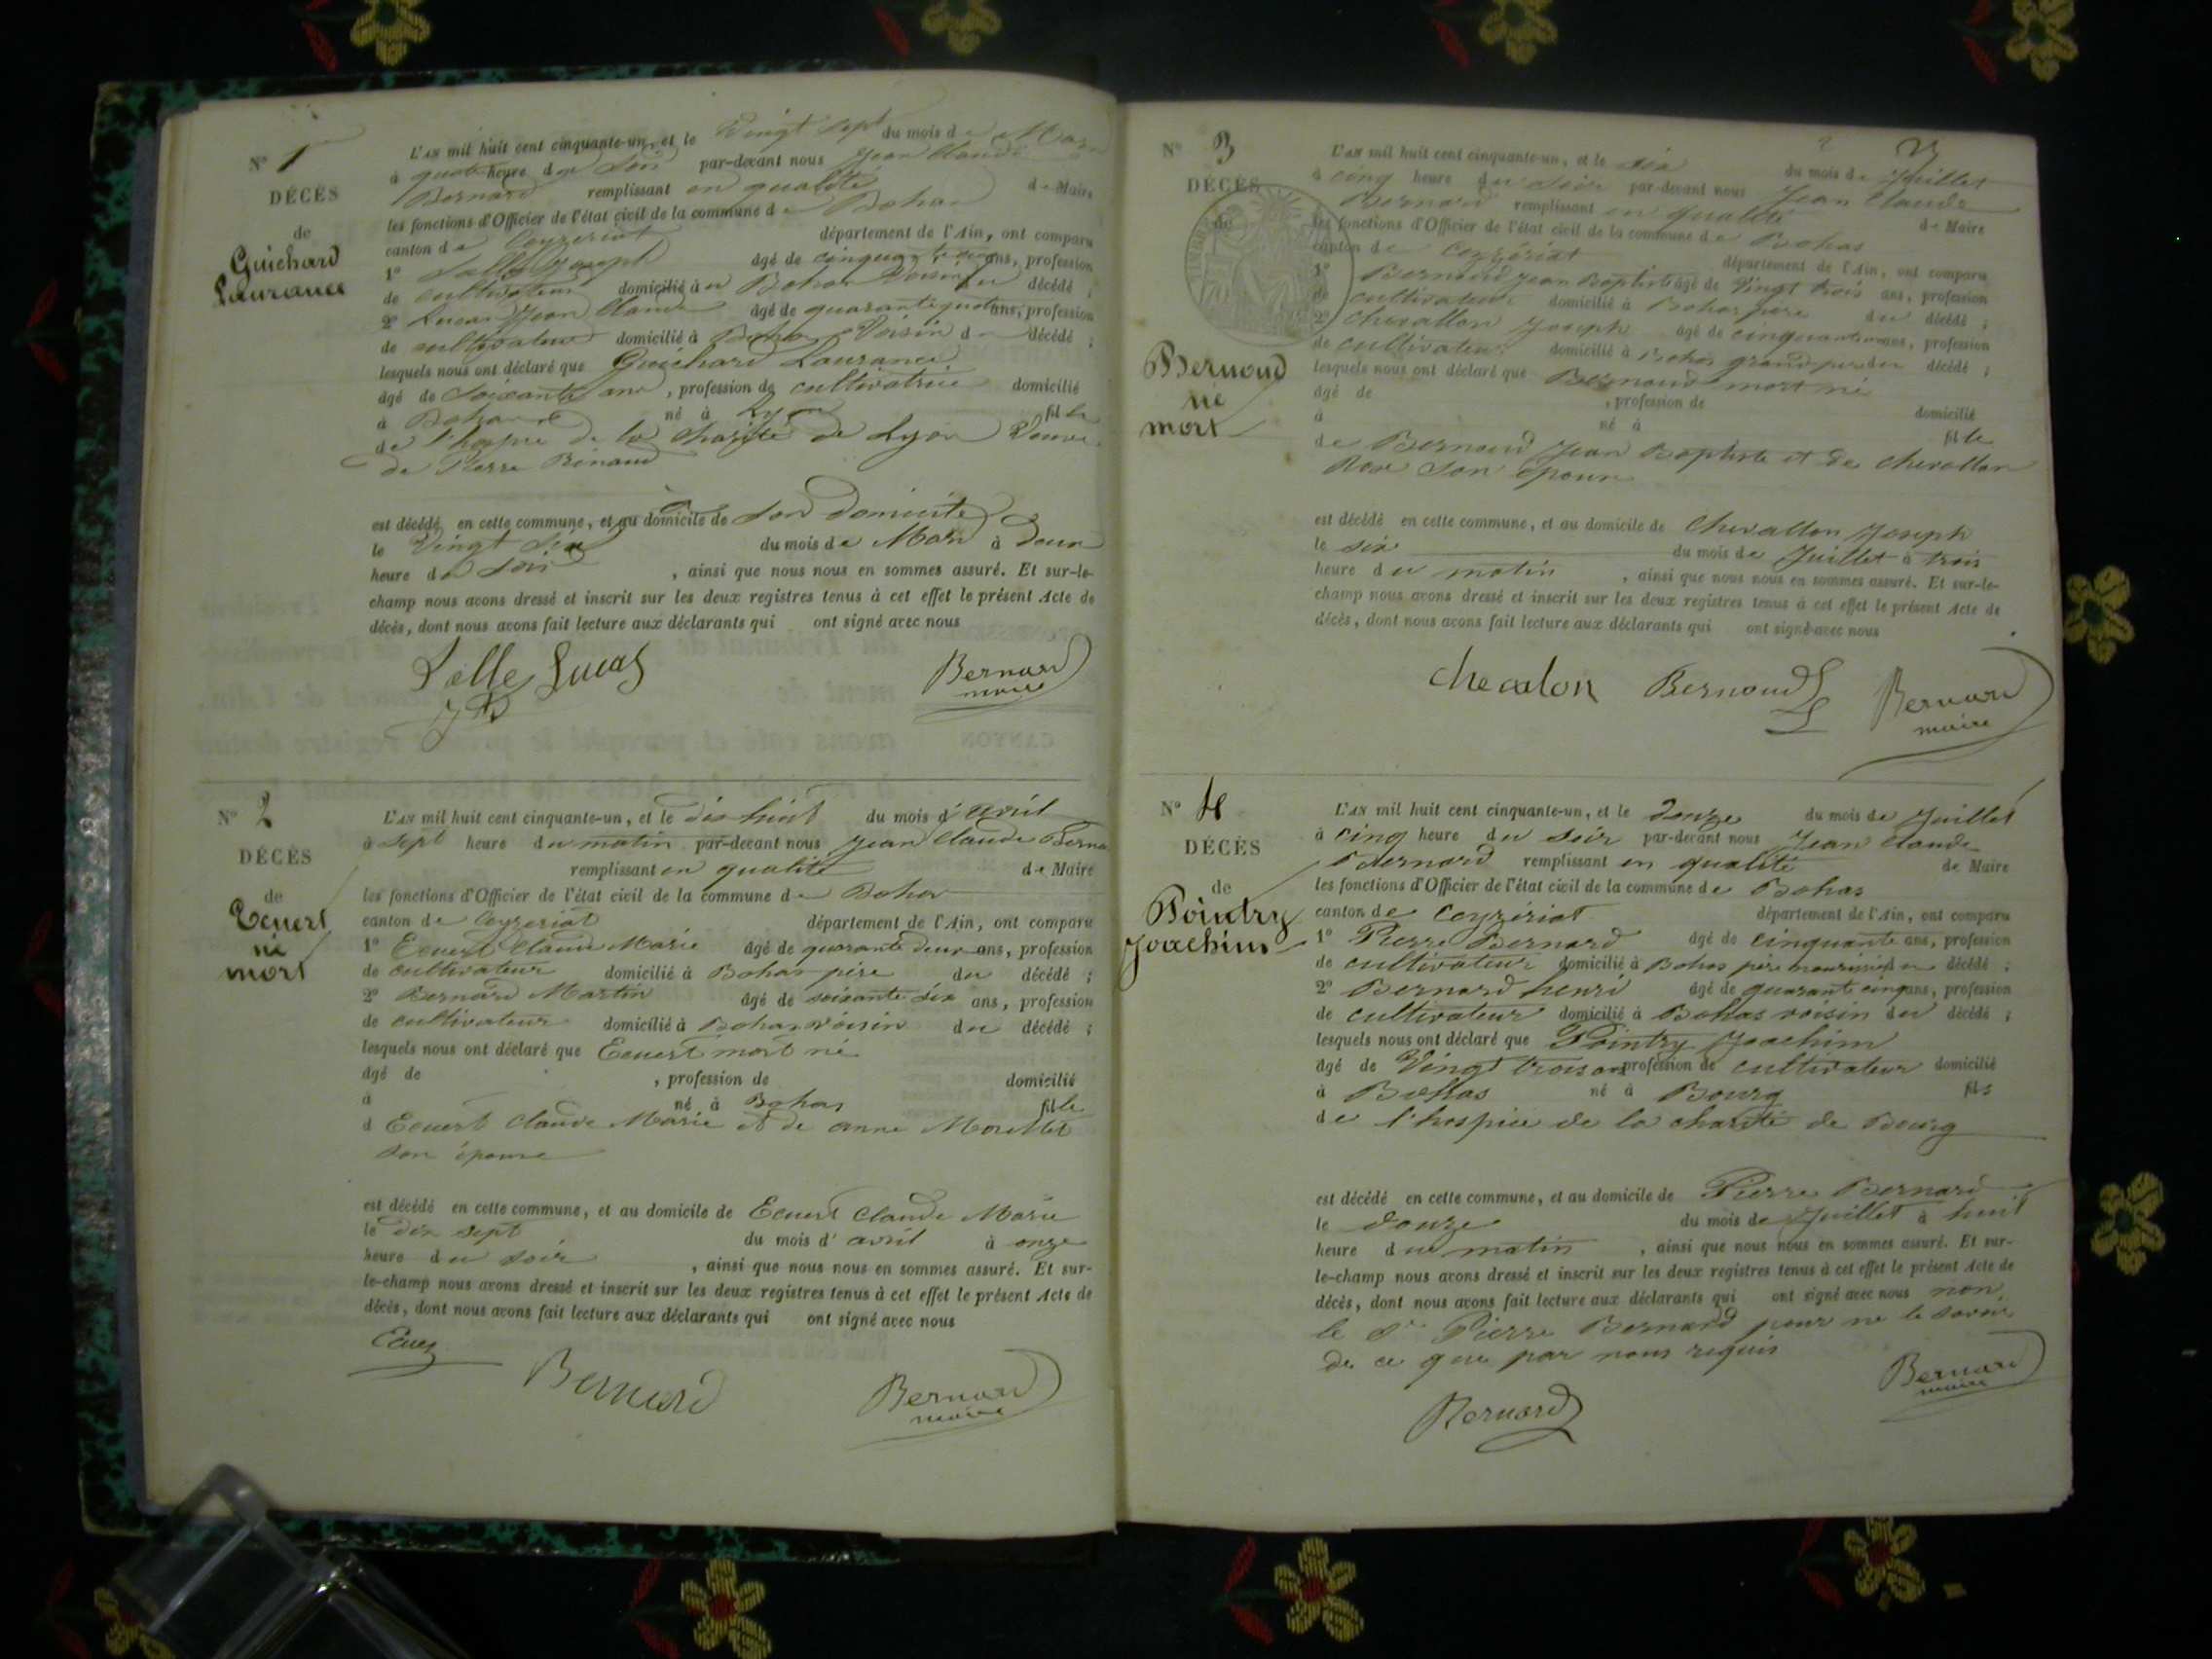 N° 1
DÉCÈS
de
Guichard
Laurance
L'AN mil huit cent cinquante-un, et le Vingt sept du mois de Mars
à quatre heure du Soir par-devant nous Jean Claude
Bernard remplissant en qualité de Maire
les fonctions d'Officier de l'état civil de la commune de Bohas
canton de Ceyzeriat département de l'Ain, ont comparu
1° Joseph âgé de cinquante ans, profession
de cultivateur domicilié à Bohas Voisin du décédé ;
2° Lucas Jean Claude âgé de quarante quatre ans, profession
de cultivateur domicilié à Bohas Voisin de décédé ;
lesquels nous ont déclaré que Guichard Laurance
âgé de Soixante ans, profession de cultivatrice domicilié
à Bohas né à Lyon fille
de l'hospice de la charité de Lyon Veuve
de Pierre Renaud
est décédé en cette commune, et au domicile de Son Domicile
le Vingt Six du mois de Mars à Deux
heure du Soir , ainsi que nous nous en sommes assuré. Et sur-le-
champ nous avons dressé et inscrit sur les deux registres tenus à cet effet le présent Acte de
décès, dont nous avons fait lecture aux déclarants qui ont signé avec nous
Lucas Bernard
maire
N° 2
DÉCÈS
de
Ecuert
né
mort
L'AN mil huit cent cinquante-un, et le dix huit du mois d'avril
à Sept heure du matin par-devant nous Jean Claude Berna
remplissant en qualité de Maire
les fonctions d'Officier de l'état civil de la commune de Bohas
canton de Ceyzeriat département de l'Ain, ont comparu
1° Ecuert Claude Marie âgé de quarante deux ans, profession
de cultivateur domicilié à Bohas père du décédé ;
2° Bernard Martin âgé de soixante dix ans, profession
de cultivateur domicilié à Bohas voisin du décédé ;
lesquels nous ont déclaré que Ecuert mort né
âgé de , profession de domicilié
à né à Bohas fille
d Ecuert Claude Marie et de anne
son épouse
est décédé en cette commune, et au domicile de Ecuert Claude Marie
le dix sept du mois d'avril à onze
heure du soir , ainsi que nous nous en sommes assuré. Et sur-
le-champ nous avons dressé et inscrit sur les deux registres tenus à cet effet le présent Acte de
décès, dont nous avons fait lecture aux déclarants qui ont signé avec nous
Bernard Bernard
maire
N° 3
DÉCÈS
de
Bernoud
né
mort
L'AN mil huit cent cinquante-un, et le six du mois de Juillet
à cinq heure du soir par-devant nous Jean Claude
Bernard remplissant en qualité de Maire
les fonctions d'Officier de l'état civil de la commune de Bohas
canton de Ceyzériat département de l'Ain, ont comparu
1° Bernoud Jean Baptiste âgé de Vingt trois ans, profession
de cultivateur domicilié à Bohas père du décédé ;
2° Chevallon Joseph âgé de cinquante ans, profession
de cultivateur domicilié à Bohas grand père du décédé ;
lesquels nous ont déclaré que Bernoud mort né
âgé de , profession de domicilié
à né à fille
de Bernoud Jean Baptiste et de Chevallon
son épouse
est décédé en cette commune, et au domicile de Chevallon Joseph
le six du mois de Juillet à trois
heure du matin , ainsi que nous nous en sommes assuré. Et sur-le-
champ nous avons dressé et inscrit sur les deux registres tenus à cet effet le présent Acte de
décès, dont nous avons fait lecture aux déclarants qui ont signé avec nous
Chevalon Bernoud Bernard
maire
N° 4
DÉCÈS
de
Pointry
Joachim
L'AN mil huit cent cinquante-un, et le douze du mois de Juillet
à cinq heure du soir par-devant nous Jean Claude
Bernard remplissant en qualité de Maire
les fonctions d'Officier de l'état civil de la commune de Bohas
canton de Ceyzériat département de l'Ain, ont comparu
1° Pierre Bernard âgé de cinquante ans, profession
de cultivateur domicilié à Bohas père nourricier du décédé ;
2° Bernard henri âgé de quarante cinq ans, profession
de cultivateur domicilié à Bohas voisin du décédé ;
lesquels nous ont déclaré que Pointry Joachim
âgé de Vingt trois ans profession de cultivateur domicilié
à Bohas né à Bourg fils
de l'hospice de la charité de Bourg
est décédé en cette commune, et au domicile de Pierre Bernard
le douze du mois de Juillet à huit
heure du matin , ainsi que nous nous en sommes assuré. Et sur-
le-champ nous avons dressé et inscrit sur les deux registres tenus à cet effet le présent Acte de
décès, dont nous avons fait lecture aux déclarants qui ont signé avec nous non
le Sr Pierre Bernard pour ne le savoir
de ce que par nous requis
Bernard Bernard
maire